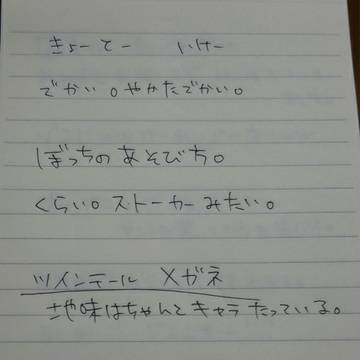 きょーとー いけー
でかい。やかたでかい。
ぼっちのあそび方。
くらい。ストーカーみたい。
ツインテール メガネ
地味はちゃんとキャラたっている。